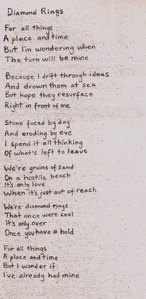 Diamond Rings
For all things
A place and time
But I'm wondering when
The turn will be mine
Because I drift through ideas
And drown them at sea
But hope they resurface
Right in front of me
Stone faced by day
And eroding by eve
I spend it all thinking
Of what's left to leave
We're grains of sand
On a hostile beach
It's only love
When it's just out of reach
We're diamond rings
That once were coal
It's only over
Once you have a hold
For all things
A place and time
But I wonder if
I've already had mine